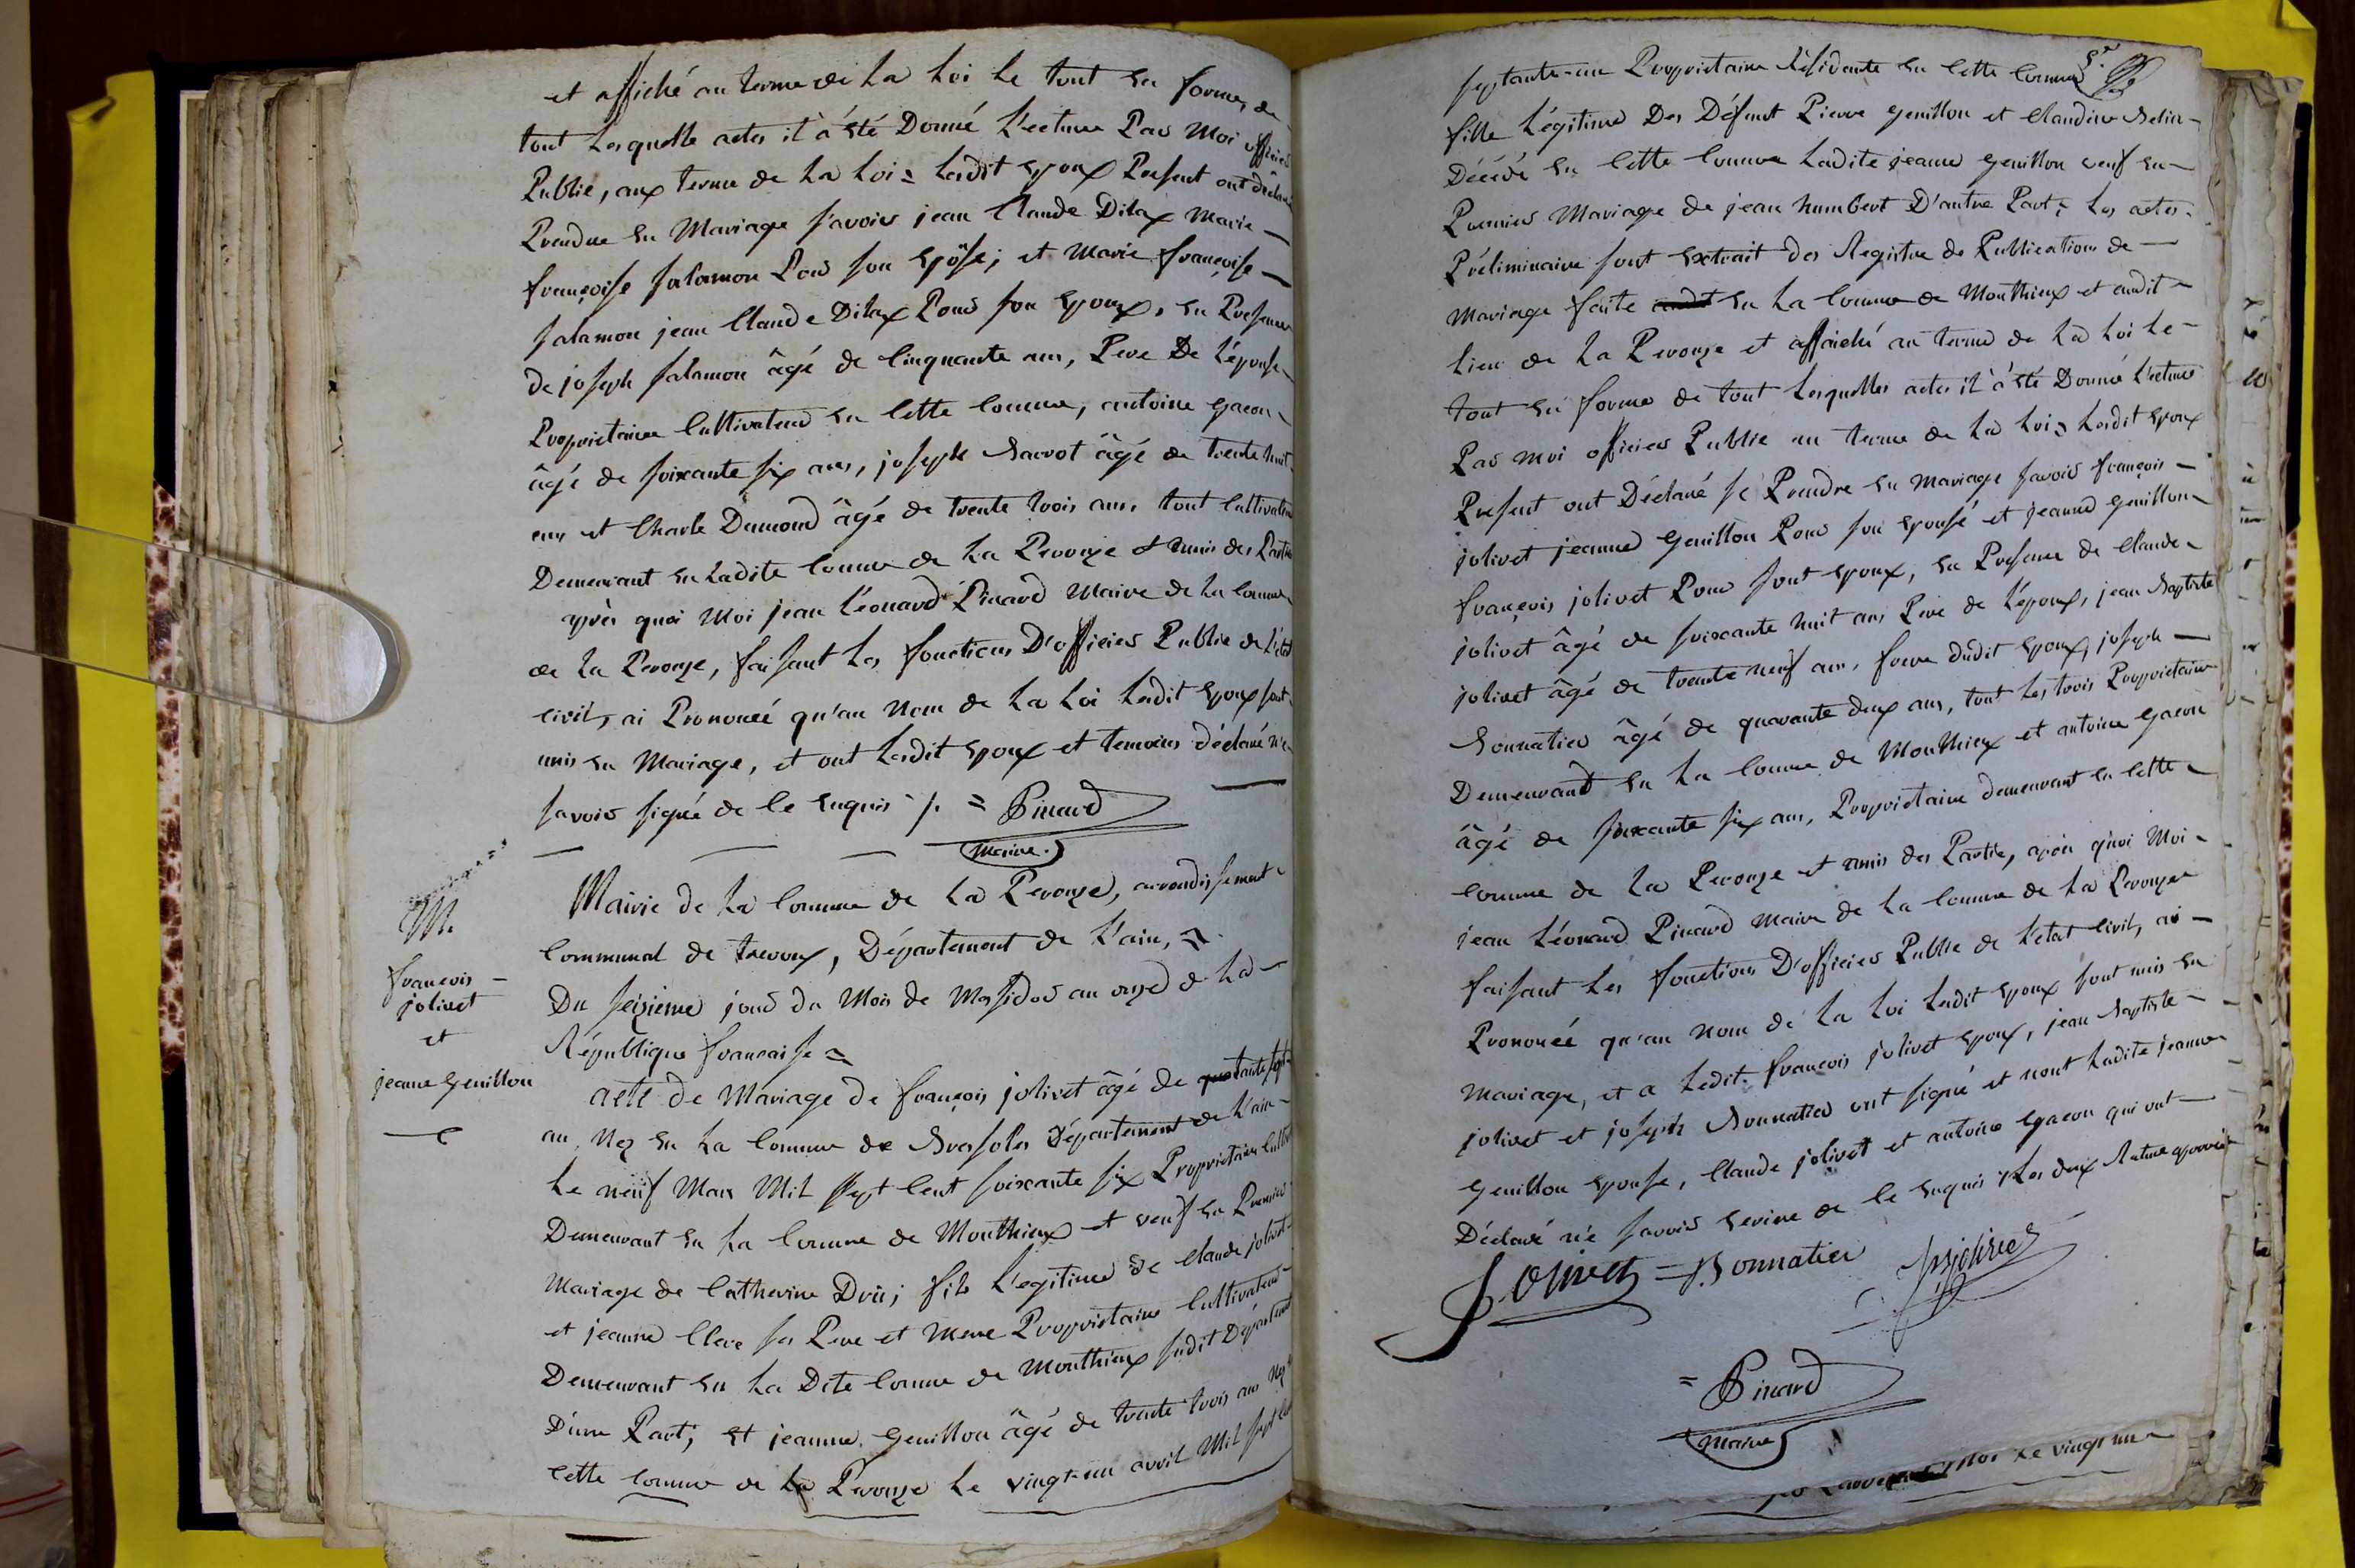 et affiché au terme de La Loi Le tout en forme, de
tout Lesquelle actes il à été Donné L'ecture Par Moi officier
Public, aux terme de La Loi = Lesdit Epoux Present ont déclaré
Prendre En Mariage savoir jean Claude Dilax Marie
françoise salamon Pour son Epôse; et Marie françoise
salamon jean Claude Dilax Pour son Epoux, En Presence
de joseph salamon âgé de Cinquante ans, Pere De L'épouse
Proprietaire Cultivateur En Cette Commune, antoine Gacon
âgé de soixante six ans, joseph Sarrot âgé de trente huit
ans et Charle Dumond âgé de trente trois ans, tout Cultivateur
Demeurant En Ladite Commune de La Perouze et amis des Partie
après quoi Moi jean Léonard Pinard Maire de La Commune
de La Perouze, faisant Les fonctions D'officier Public de L'état
civil, ai Prononcé qu'au Nom de La Loi Lesdit Epoux sont
unis En Mariage, et ont Lesdit Epoux et temoins déclaré n'e
savoir signé de Ce Enquis /. = Pinard
Maire.
M.
françois
jolivet
et
jeanne Genillon
Mairie de La Commune de La Perouze, arrondissement
Communal de trevoux, Département de L'ain, =
Du seizieme jour du Mois de Messidor an onze de La
République francaise =
acte de Mariage de françois jolivet âgé de trente sept
an, Nez En La Commune de Bressoles Département de L'ain
Le neuf Mars Mil sept Cent soixante six Proprietaire Cultiv
Demeurant En La Commune de Monthieux et veuf En Premier
Mariage de Catherine Dru; fils L'egitime de Claude jolivet
et jeanne Clerc ses Pere et Mere Proprietaire Cultivateur
Demeurant En La Dite Commune de Monthieux sudit Département
D'une Part; Et jeanne Genillon âgé de trente trois ans Nez
Cette Commune de La Perouze Le vingt-un avril Mil sept Cent
septante-un Proprietaire Résidante En Cette Commune
fille Légitime Des Défunt Pierre Genillon et Claudine
Décédé En Cette Commune Ladite jeanne Genillon veuf En
Premier Mariage de jean humbert D'autre Part; Les actes
Préliminaire sont Extrait des Registre de Publications de
Mariage faite En La Commune de Monthieux et audit
Lieu de La Perouze et affiché au terme de La Loi Le
tout En forme de tout Lesquelles actes il à été Donné L'ecture
Par Moi officier Public au terme de La Loi = Lesdit Epoux
Present ont Déclaré se Prendre En Mariage savoir françois
jolivet jeanne Genillon Pour son Epousé et jeanne Genillon
françois jolivet Pour sont Epoux, En Presence de Claude
jolivet âgé de soixante huit ans Pere de L'époux, jean Baptiste
jolivet âgé de trente neuf ans, frere dudit Epoux, joseph
Bonnatier âgé de quarante deux ans, tout Les trois Proprietaire
Demeurant En La Commune de Monthieux et antoine Gacon
âgé de soixante six ans, Proprietaire demeurant En Cette
Commune de La Perouze et amis des Partie, après quoi Moi
jean Léonard Pinard Maire de La Commune de La Perouze
faisant Les fonctions D'officier Public de L'état Civil, ai
Prononcé qu'au Nom de La Loi Lesdit Epoux sont unis En
Mariage, et a Ledit françois jolivet Epoux, jean Baptiste
jolivet et joseph Bonnatier ont signé et nont Ladite jeanne
Genillon Epouse, Claude jolivet et antoine Gacon qui ont
Déclaré n'e savoir Ecrire de Ce Enquis Les deux Rature approuvé
Jolivet = Bonnatier
= Pinard
Maire
Le vingt un